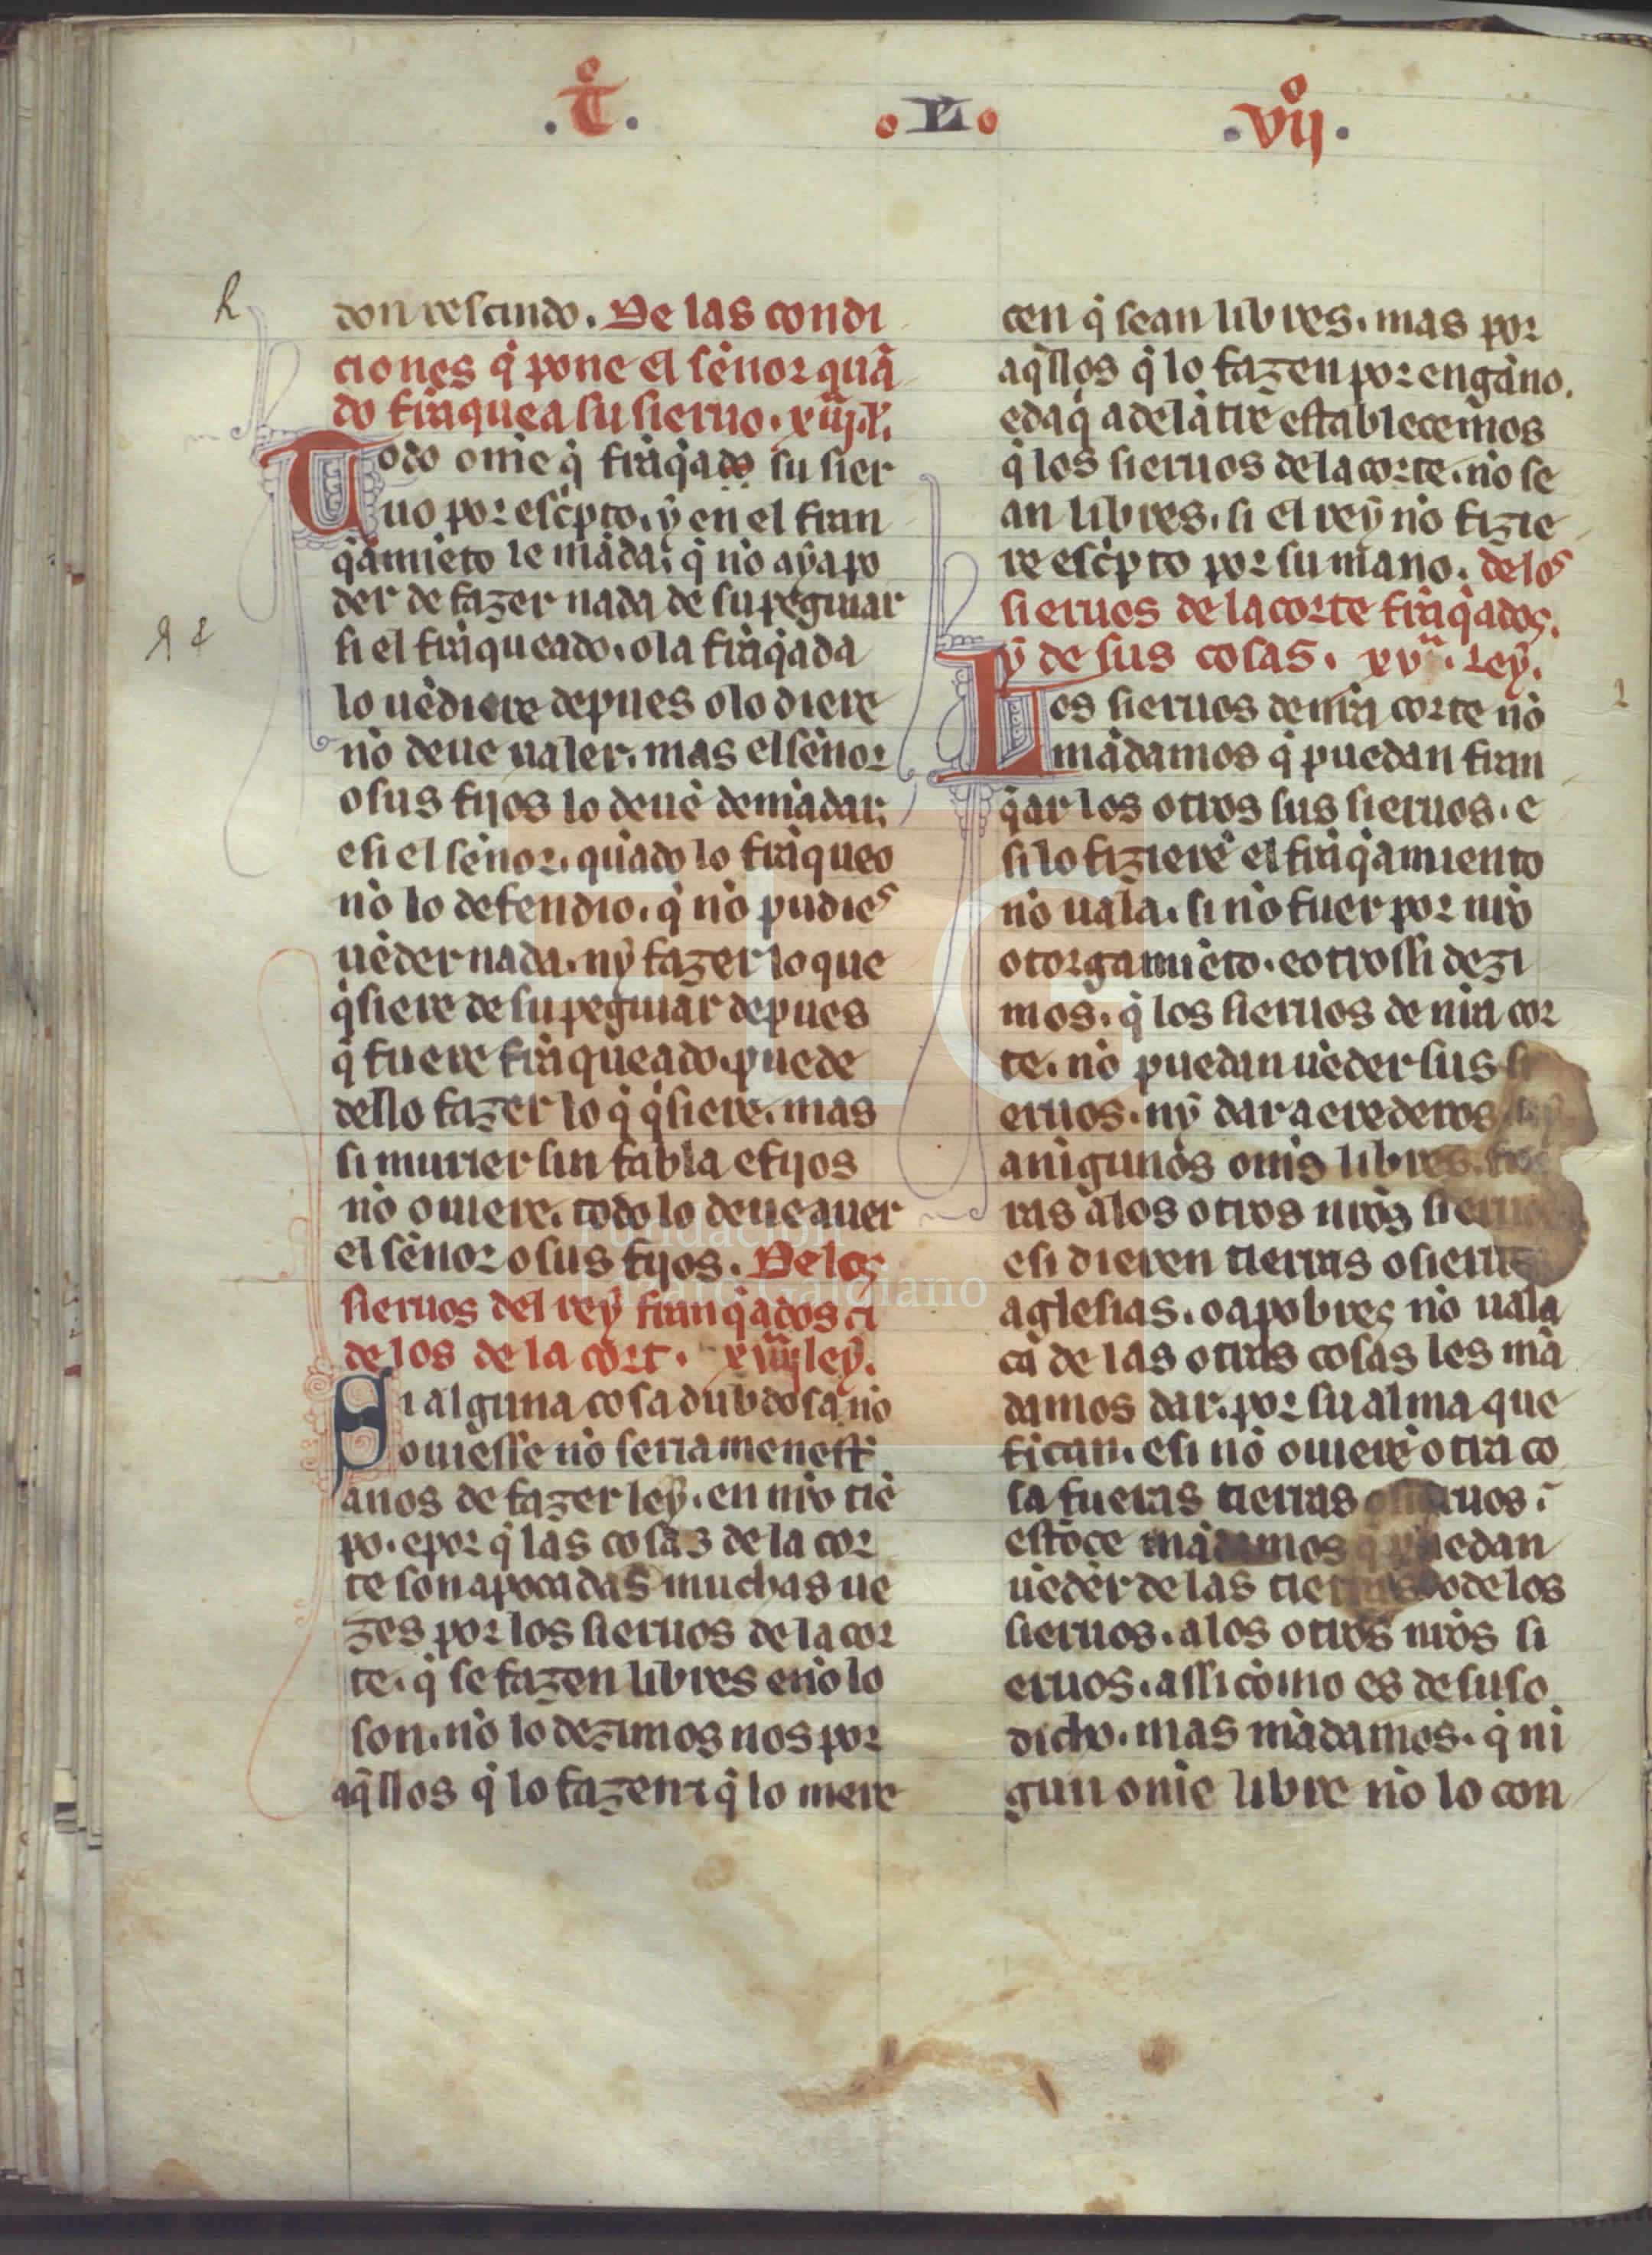 .t̊. .L. .vıȷ̊.
don resciudo. De las condi
ciones q̇ pone el sēnor quā
do frāquea su sieruo. xiiȷ. l.
Todo om̄e q̇ frāq̇ado su sier
uo por esc̍pto. ẏ en el fran
q̇amiēto le māda; q̇ nō aẏa po
der de fazer nada de su peguiar
si el frāqueado. o la frāq̇ada
lo uēdiere depues o lo diere
nō deue ualer. mas el sēnor
o sus fijos lo deuē demādar;
e si el sēnor. quādo lo frāqueo
nō lo defendio. q̇ nō pudies
uēder nada. nẏ fazer lo que
q̍siere de su peguiar depues
q̇ fuere frāqueado. puede
dello fazer lo q̇ q̍siere. mas
si murier sin fabla e fijos
nō ouiere. todo lo deue auer
el sēnor o sus fijos. De los
sieruos del reẏ franq̇ados ⁊
de los de la cort. xiiiȷ leẏ.
Si alguna cosa dubdosa nō
ouiesse nō seria menest̍
anos de fazer leẏ. en nr̄o tiē
po. e por q̇ las cosas de la cor
te son apocadas muchas ue
zes por los sieruos de la cor
te. q̇ se fazen libres e nō lo
son. nō lo dezimos nos por
aq̄llos q̇ lo fazen ⁊ q̇ lo mere
cen q̇ sean libres. mas por
aq̄llos q̇ lo fazen por engāno.
e daq̍ adelātre establecemōs
q̇ los sieruos de la corte. nō se
an libres. si el reẏ nō fizie
re esc̍pto por su mano. de los
sieruos de la corte frāq̇ados.
ẏ de sus cosas. xvᵃ. Leẏ.
Los sieruos de nr̄a corte nō
mādamos q̇ puedan fran
q̇ar los otros sus sieruos. e
si lo fizierē el frāq̇amiento
nō uala. si nō fuer por nr̄o
otorgamiēto. e otrossi dezi
mos. q̇ los sieruos de nr̄a cor
te. nō puedan uēder sus si
eruos. nẏ dar a erederos
a nīgunos om̄s libres. fue
ras a los otros nr̄os sieruos
e si dieren tierras o sieruos
a glesias. o a pobres nō uala
ca de las otras cosas les mā
damos dar. por su alma que
fican. e si nō ouierē otra co
sa fueras tierras o sieruos.
estōce mādamos q̇ puedan
uēder de las tierras o de los
sieruos. a los otros nr̄os si
eruos. assi cōmo es de suso
dicho. mas mādamos. q̇ nī
gun om̄e libre nō lo con
Fundación
Lázaro Galdiano
FLG